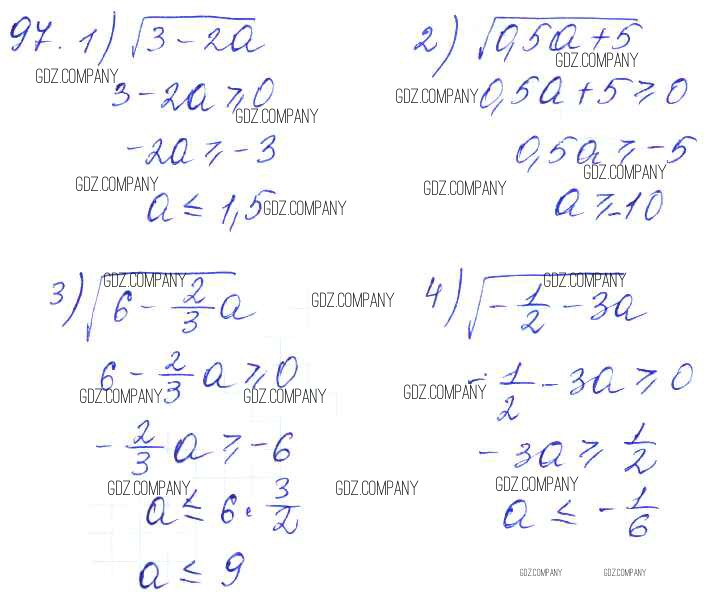 97. 1) √(3 - 2a)
GDZ.COMPANY
3 - 2a ≥ 0
GDZ.COMPANY
-2a ≥ -3
GDZ.COMPANY
a ≤ 1,5
GDZ.COMPANY
2) √(0,5a + 5)
GDZ.COMPANY
GDZ.COMPANY
0,5a + 5 ≥ 0
0,5a ≥ -5
GDZ.COMPANY
GDZ.COMPANY
a ≥ -10
GDZ.COMPANY
3) √(6 - 2/3 a)
GDZ.COMPANY
6 - 2/3 a ≥ 0
GDZ.COMPANY
GDZ.COMPANY
-2/3 a ≥ -6
GDZ.COMPANY
GDZ.COMPANY
a ≤ 6 · 3/2
a ≤ 9
GDZ.COMPANY
4) √(-1/2 - 3a)
GDZ.COMPANY
-1/2 - 3a ≥ 0
-3a ≥ 1/2
GDZ.COMPANY
a ≤ -1/6
GDZ.COMPANY
GDZ.COMPANY